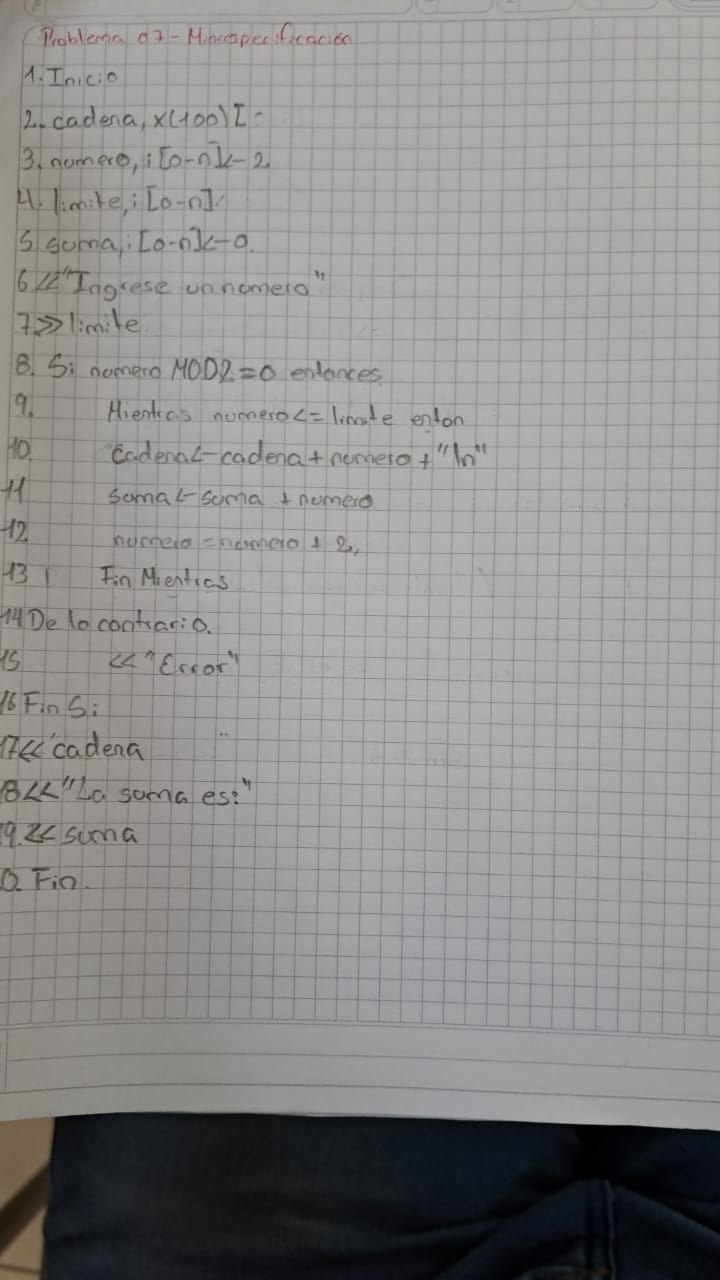 Problema 07 - Miniespecificación
1. Inicio
2. cadena, x(100) [-
3. numero, i [0-n]<-2
4. limite, i [0-n]<
5 suma, i [0-n]<-0.
6 << "Ingrese un numero"
7 >> limite
8. Si numero MOD2=0 entonces
9. Mientras numero <= limite enton
10. cadena<-cadena+numero+"\n"
11 suma<-suma + numero
12 numero = numero + 2,
13 Fin Mientras
14 De lo contrario.
15 << "Error"
16 Fin Si
17<< cadena
18<< "La suma es:"
19. << suma
0. Fin.